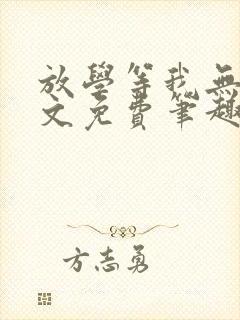 放學等我無
文免費筆趣
方志勇